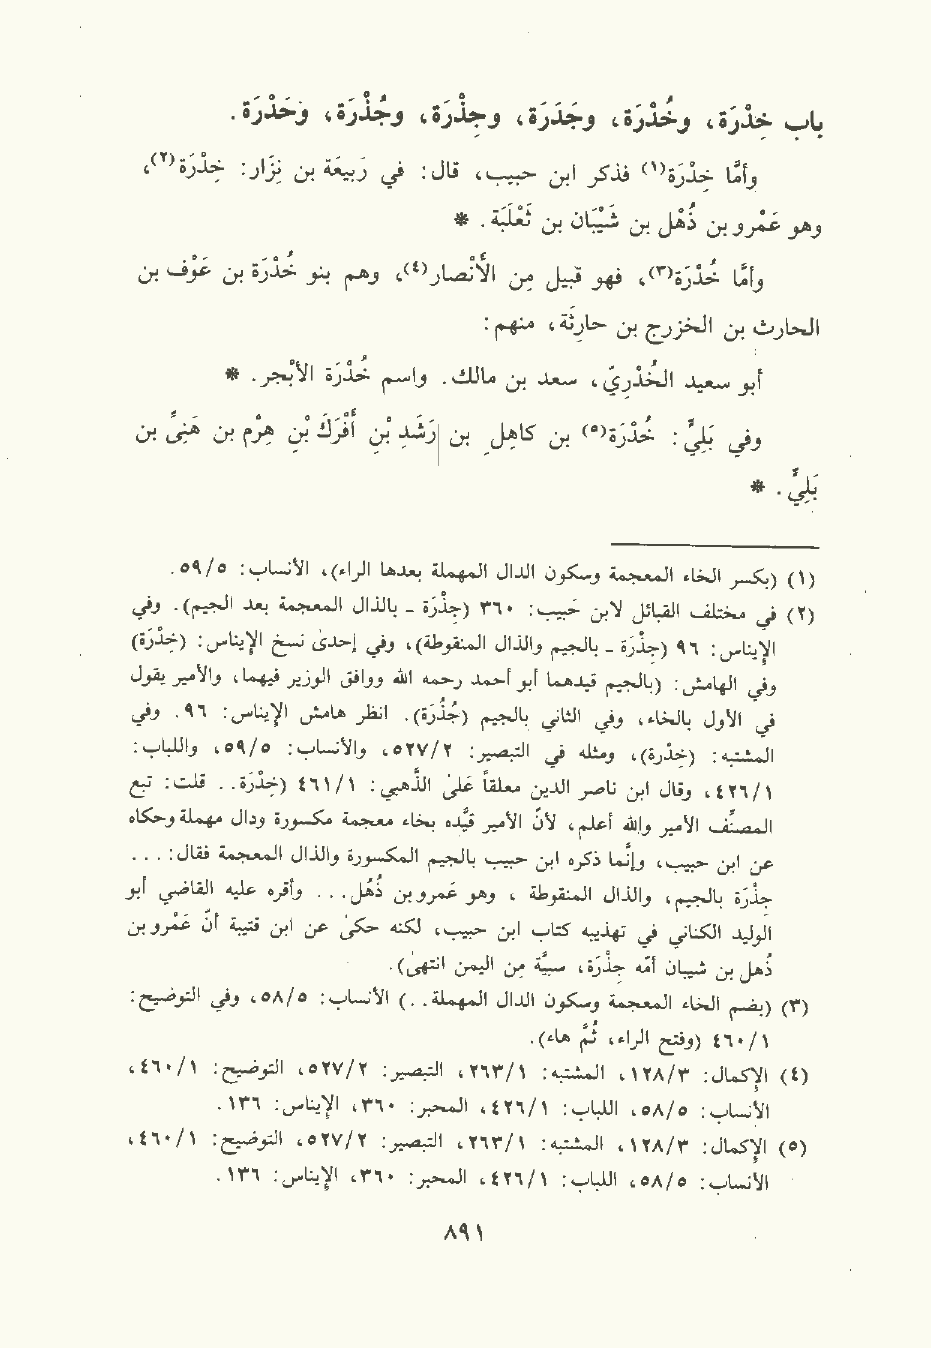 باب خِدْرَة، وخُدْرَة، وجَدَرَة، وجِذْرَة، وجُذْرَة، وَخَدْرَة.
وأمَّا خِدْرَة(١) فذكر ابن حبيب، قال: في رَبيعَة بن نِزَار: خِدْرَة(٢)،
وهو عَمْرو بن ذُهْل بن شَيْبَان بن ثَعْلَبَة. *
وأمَّا خُدْرَة(٣)، فهو قبيل مِن الأنْصار(٤)، وهم بنو خُدْرَة بن عَوْف بن
الحارث بن الخزرج بن حارِثَة، منهم:
أبو سعيد الخُدْرِيّ، سعد بن مالك. واسم خُدْرَة الأَبْجر. *
وفي بَلِيّ: خُدْرَة(٥) بن كاهِل بن رَشَدِ بْنِ أَفْرَكَ بْنِ هِرْم بن هَنِىْ بن
بَلِيّ. *
(١) (بكسر الخاء المعجمة وسكون الدال المهملة بعدها الراء)، الأنساب: ٥/٥٩.
(٢) في مختلف القبائل لابن حَبيب: ٣٦٠ (جِذْرَة - بالذال المعجمة بعد الجيم). وفي
الإيناس: ٩٦ (جِذْرَة - بالجيم والذال المنقوطة)، وفي إحدىٰ نسخ الإيناس: (خِدْرَة)
وفي الهامش: (بالجيم قيدهما أبو أحمد رحمه الله ووافق الوزير فيهما، والأمير يقول
في الأول بالخاء، وفي الثاني بالجيم (جُذْرَة). انظر هامش الإيناس: ٩٦. وفي
المشتبه: (خِدْرة)، ومثله في التبصير: ٢/٥٢٧، والأنساب: ٥/٥٩، واللباب:
١/٤٢٦، وقال ابن ناصر الدين معلقاً علىٰ الذّهبي: ١/٤٦١ (خِدْرَة.. قلت: تبع
المصنِّف الأمير والله أعلم، لأنّ الأمير قيَّده بخاء معجمة مكسورة ودال مهملة وحكاه
عن ابن حبيب، وإنَّما ذكره ابن حبيب بالجيم المكسورة والذال المعجمة فقال: ...
جِذْرَة بالجيم، والذال المنقوطة ، وهو عَمْرو بن ذُهْل... وأقره عليه القاضي أبو
الوليد الكناني في تهذيبه كتاب ابن حبيب، لكنه حكىٰ عن ابن قتيبة أنّ عَمْرو بن
ذُهل بن شيبان أمّه جِذْرَة، سبيَّة مِن اليمن انتهىٰ).
(٣) (بضم الخاء المعجمة وسكون الدال المهملة..) الأنساب: ٥/٥٨، وفي التوضيح:
١/٤٦٠ (وفتح الراء، ثُمّ هاء).
(٤) الإكمال: ٣/١٢٨، المشتبه: ١/٢٦٣، التبصير: ٢/٥٢٧، التوضيح: ١/٤٦٠،
الأنساب: ٥/٥٨، اللباب: ١/٤٢٦، المحبر: ٣٦٠، الإيناس: ١٣٦.
(٥) الإكمال: ٣/١٢٨، المشتبه: ١/٢٦٣، التبصير: ٢/٥٢٧، التوضيح: ١/٤٦٠،
الأنساب: ٥/٥٨، اللباب: ١/٤٢٦، المحبر: ٣٦٠، الإيناس: ١٣٦.
٨٩١